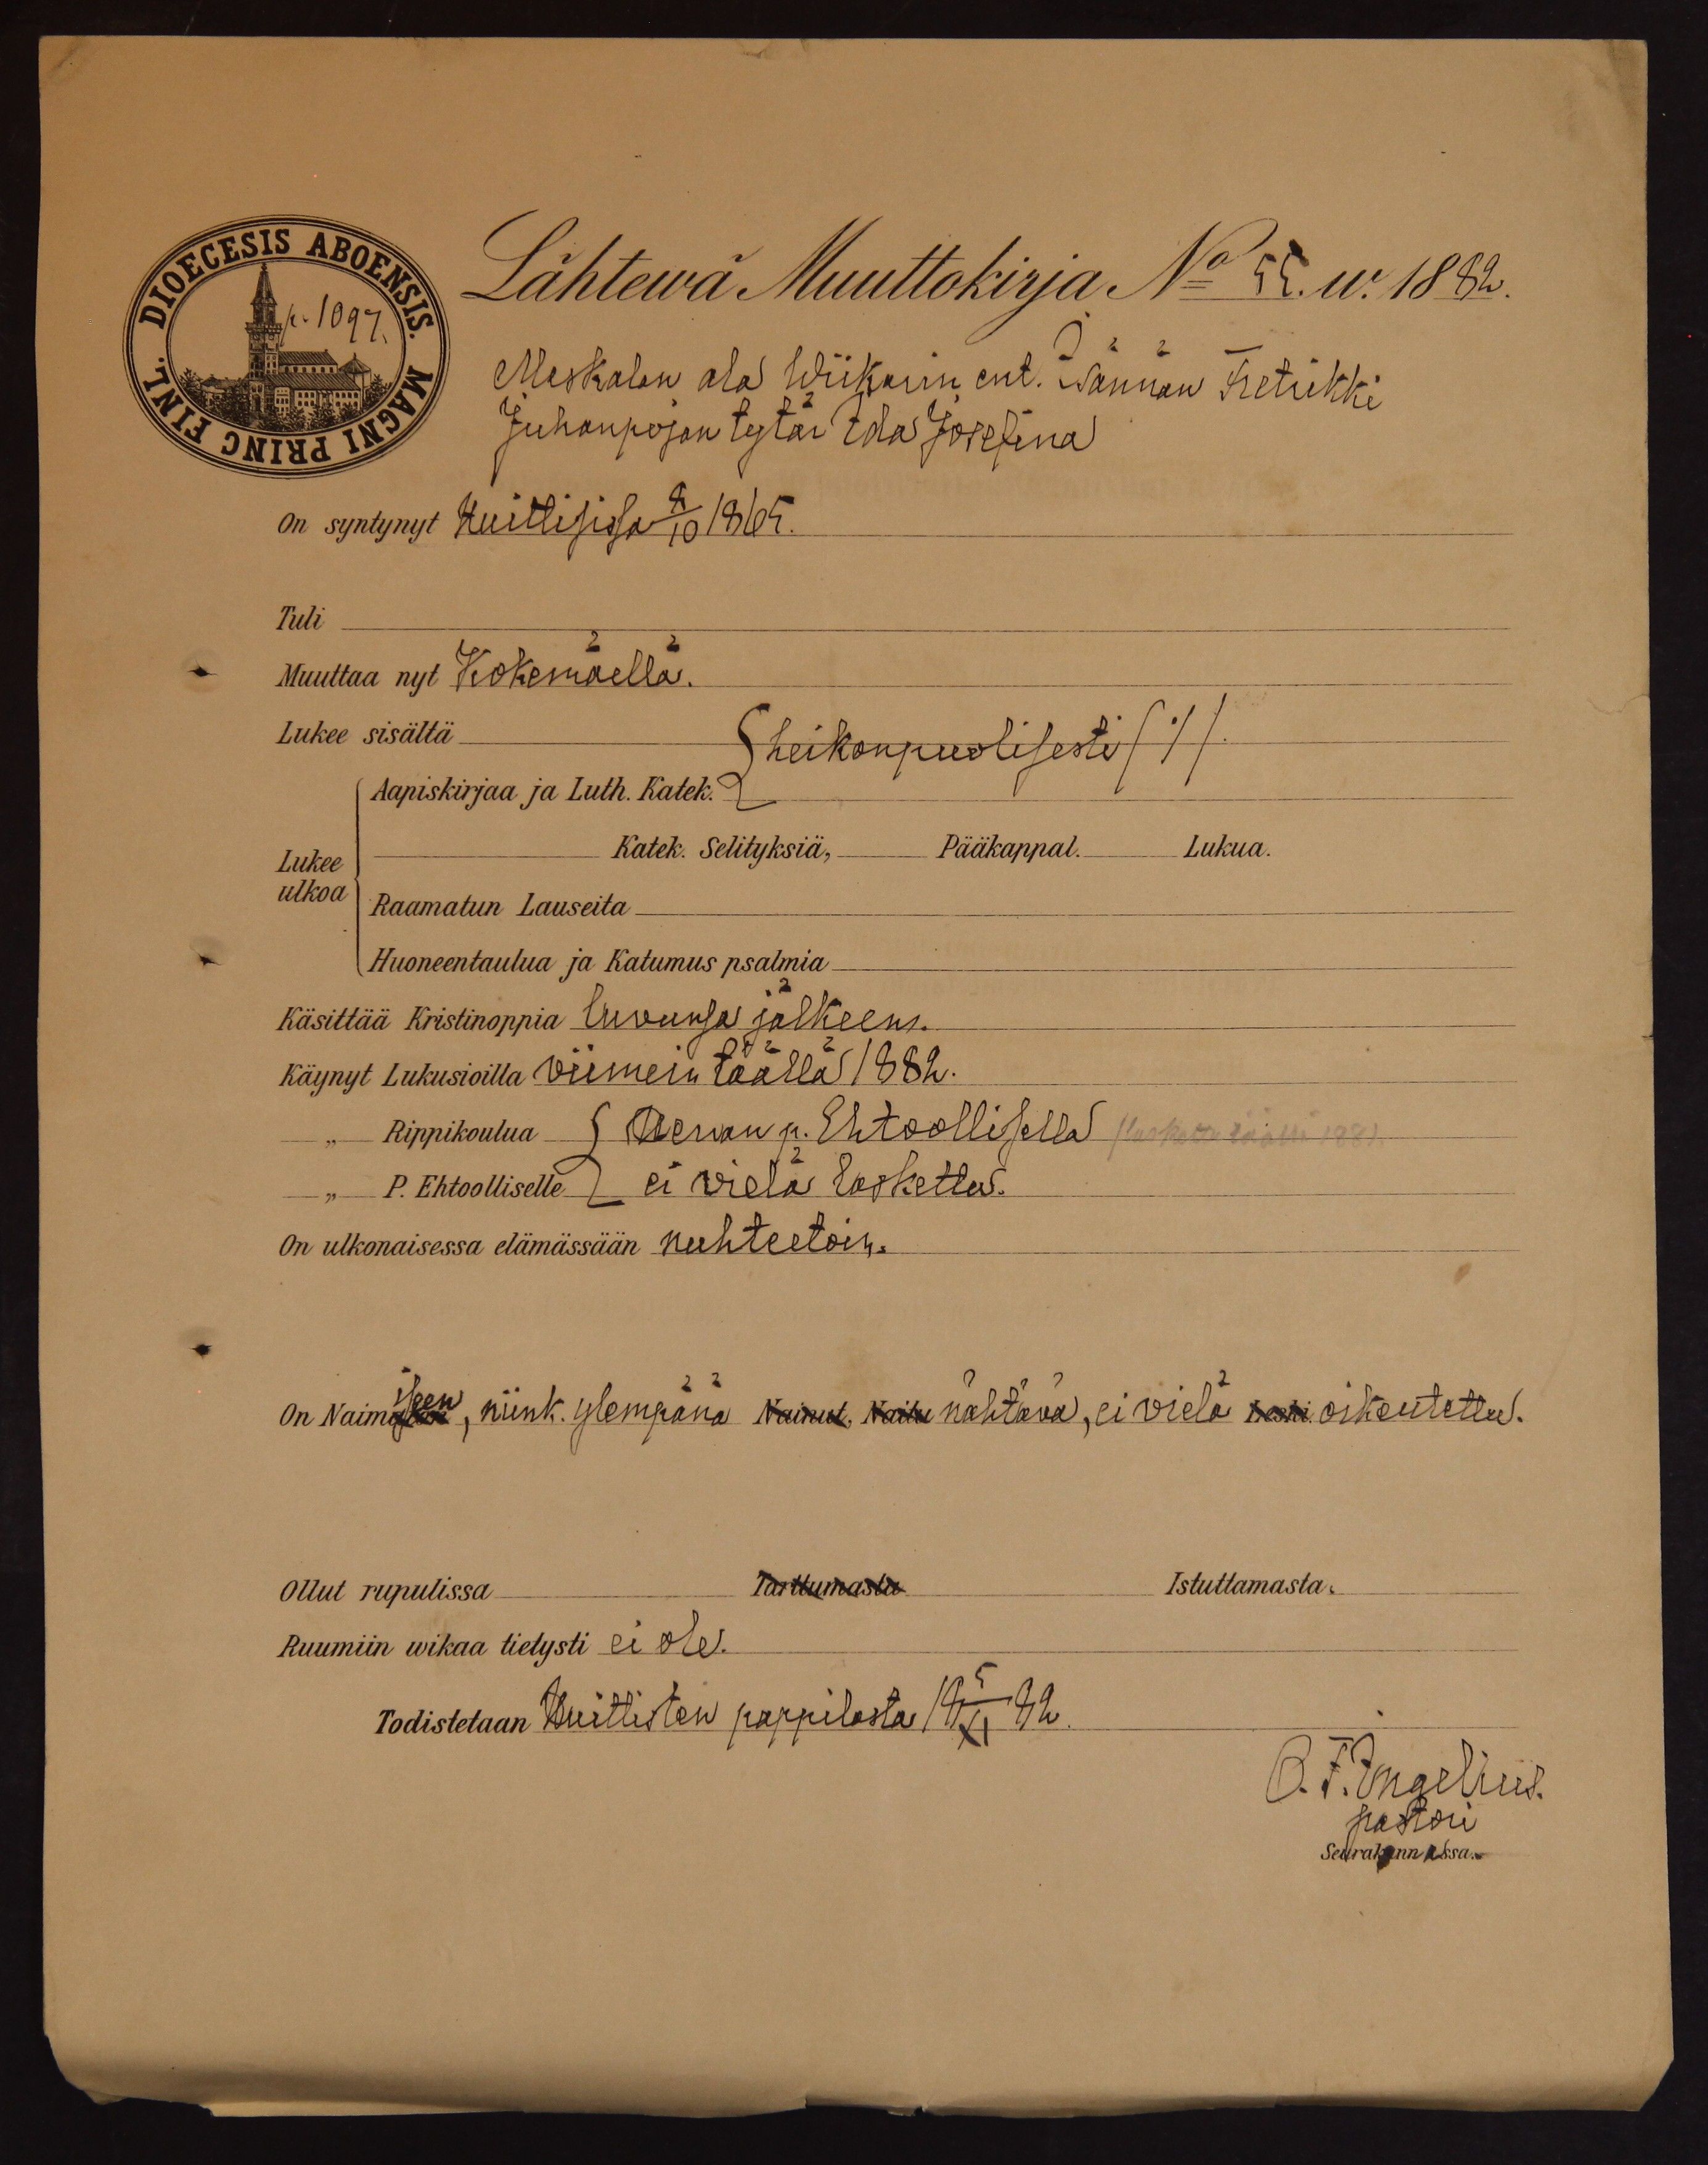 DIOECESIS ABOENSIS. MAGNI PRINC FINL.
p. 1097.
Lähtewä Muuttokirja No 55. w. 1882.
Meskalan ala Wiikarin ent. Isännän Fretrikki
Juhanpojan tytär Ida Josefina
On syntynyt Huittisissa 8/10 1865.
Tuli
Muuttaa nyt Kokemäellä.
Lukee sisältä heikonpuolisesti /./.
Aapiskirjaa ja Luth. Katek.
Katek. Selityksiä, Pääkappal. Lukua.
Lukee ulkoa
Raamatun Lauseita
Huoneentaulua ja Katumus psalmia
Käsittää Kristinoppia luvunsa jälkeen.
Käynyt Lukusioilla viimein täällä 1882.
„ Rippikoulua Herran p. Ehtoollisella
„ P. Ehtoolliselle ei vielä laskettu.
On ulkonaisessa elämässään nuhteetoin.
On Naimiseen, niink. ylempänä Nainut, Naitu nähtävä, ei vielä Leski oikeutettu.
Ollut rupulissa Tarttumasta Istuttamasta.
Ruumiin wikaa tietysti ei ole.
Todistetaan Huittisten pappilasta 18 5/XI 82.
O. F. Ingelius.
pastori
Seurakunnassa.